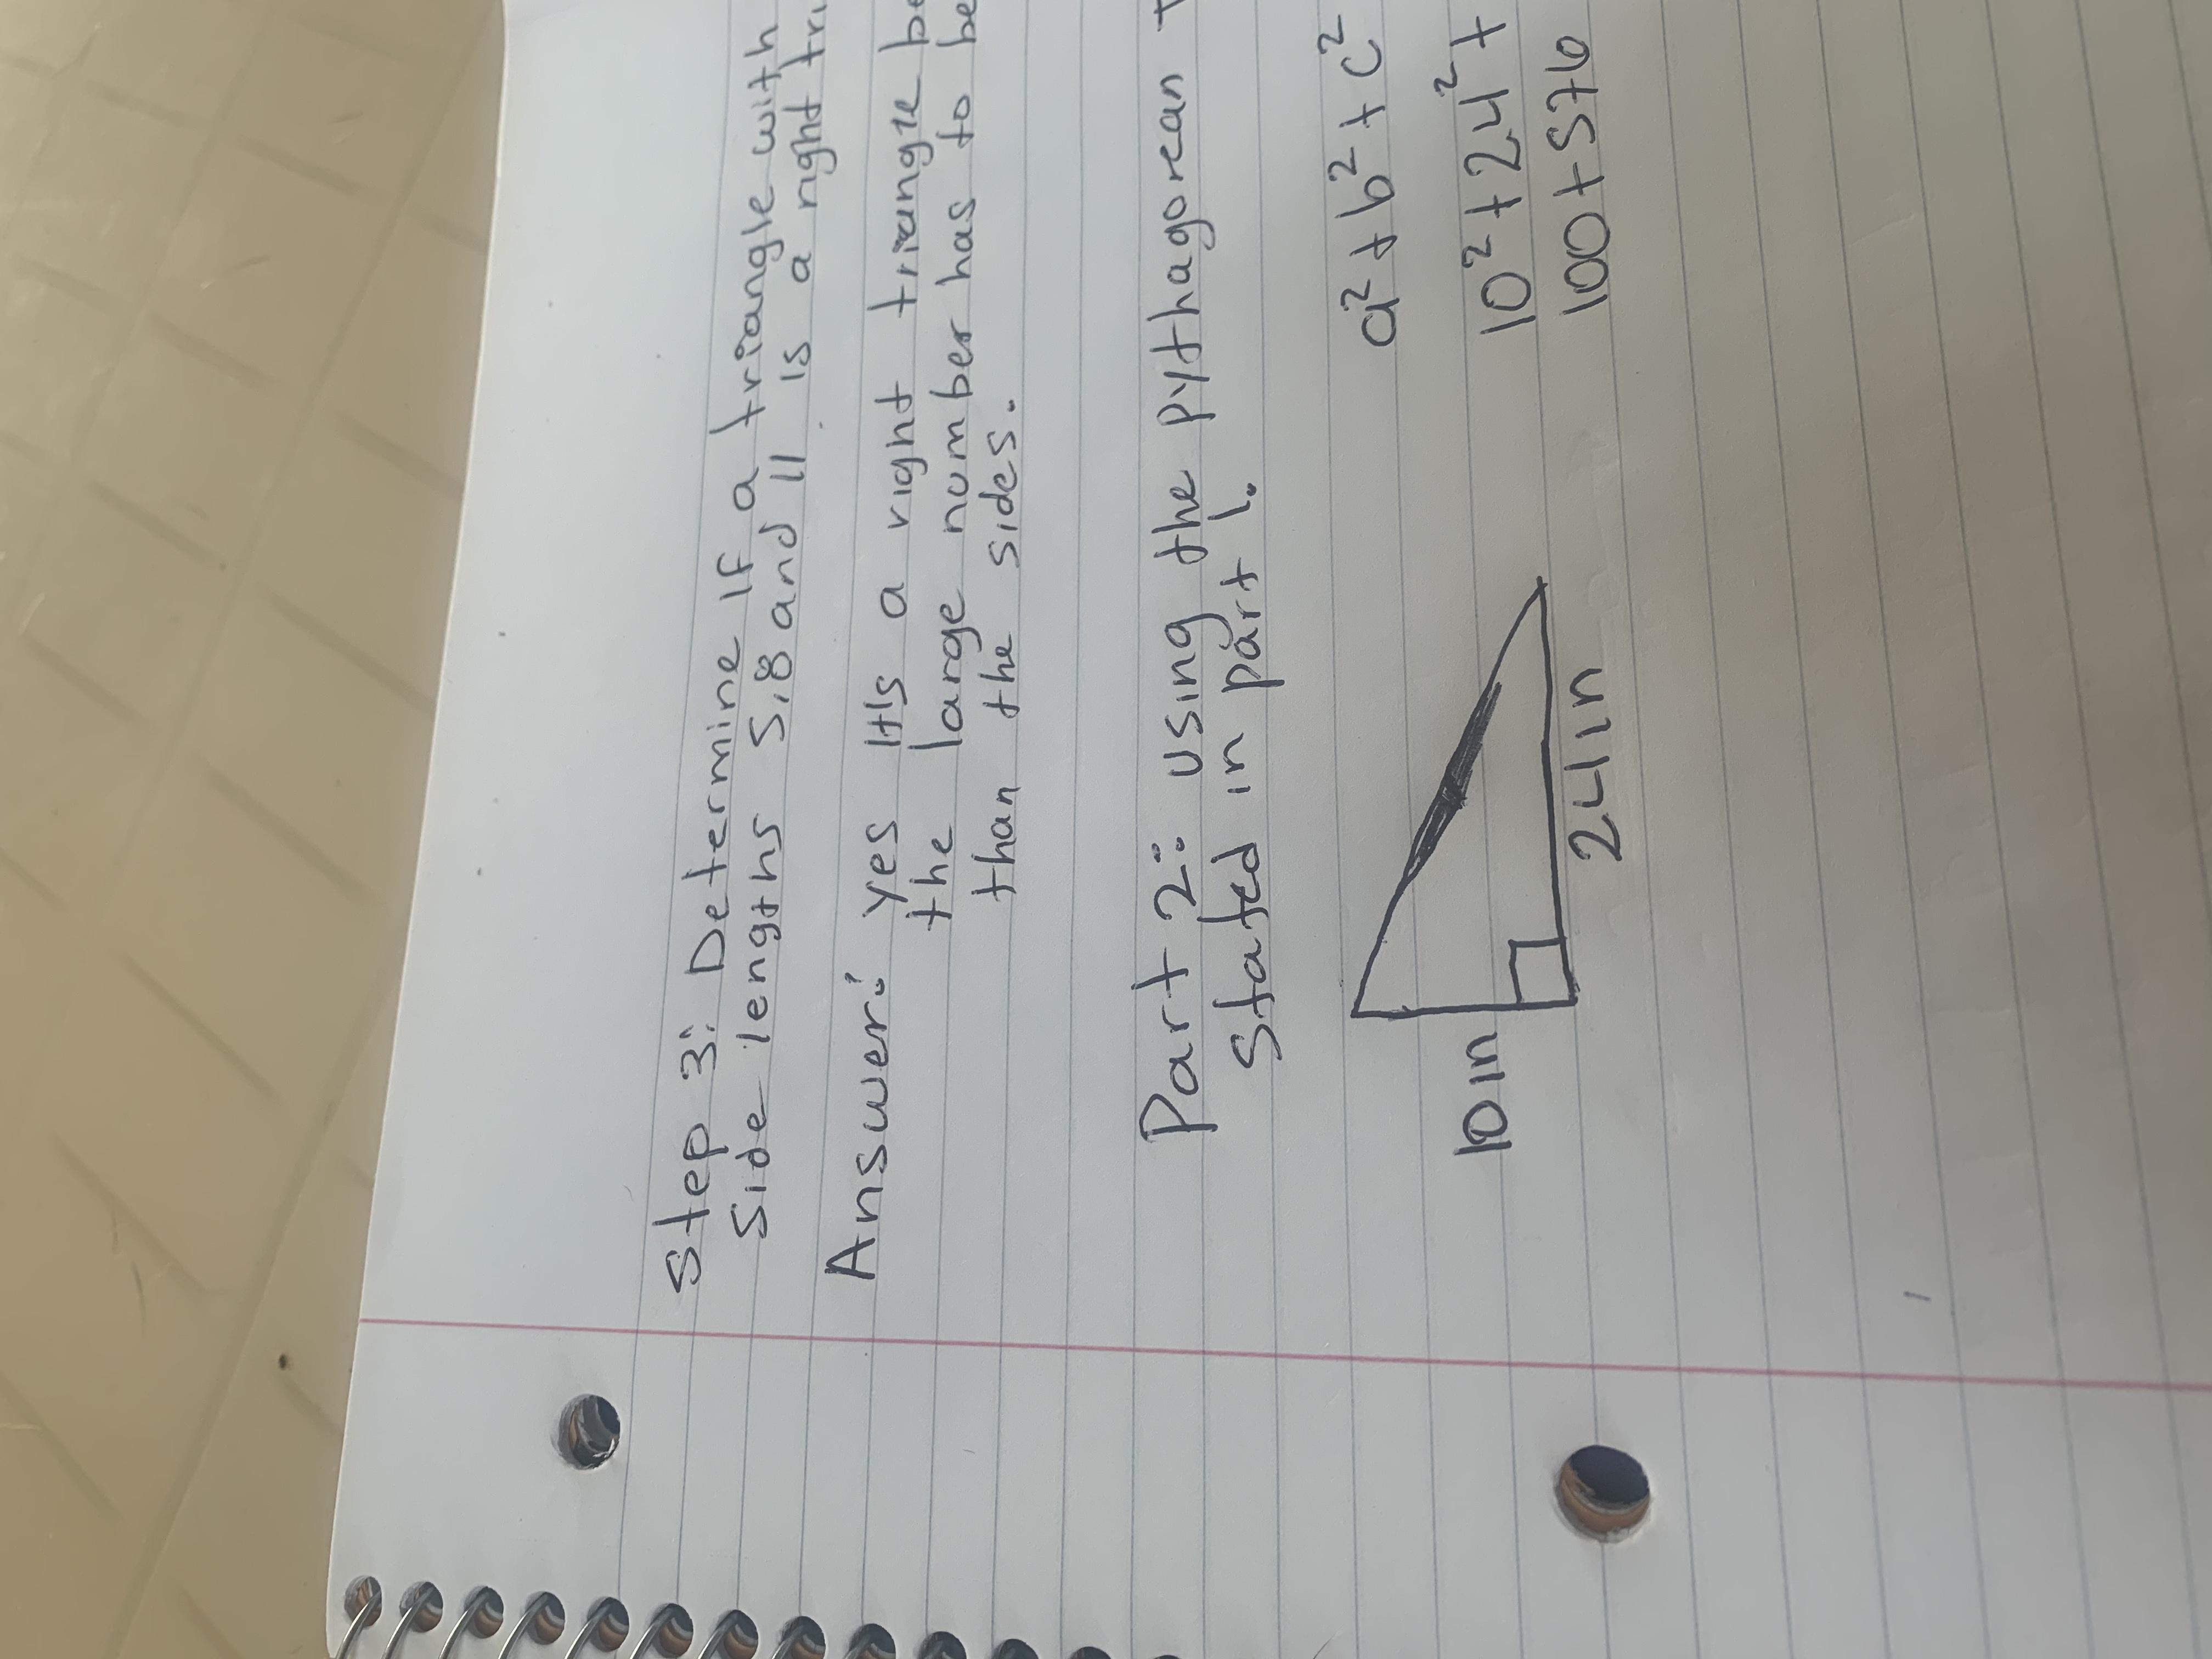 Step 3: Determine if a triangle with
side lengths 5,8 and 11 is a right tri
Answer: yes it's a right triangle be
the large number has to be
than the sides.
Part 2: using the pythagorean t
stated in part 1.
a² + b² + c²
10 in
10² + 24² +
100 + 576
24 in